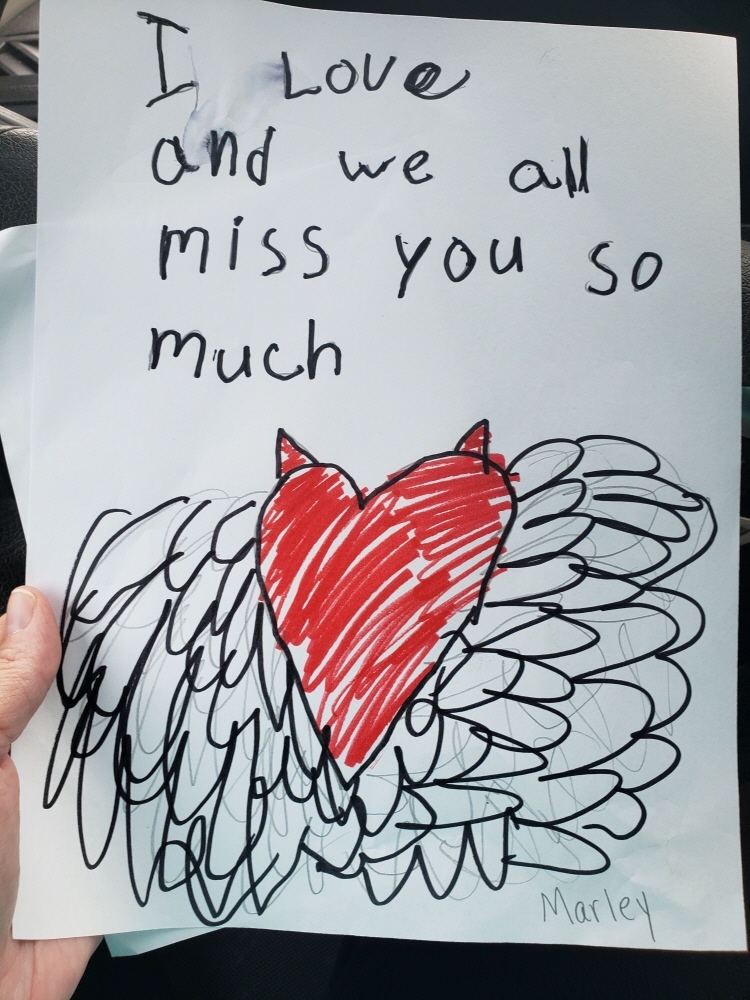 I Love
and we all
miss you so
much
Marley